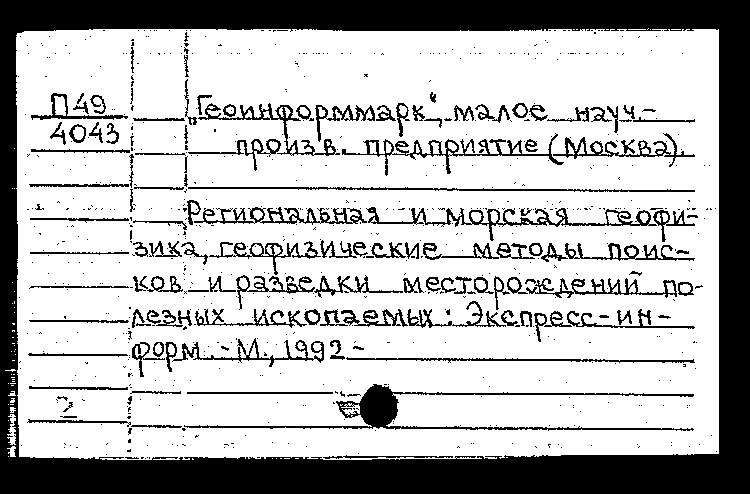 П49
4043
„Геоинформмарк“, малое науч.-
произв. предприятие (Москва).
Региональная и морская геофи-
зика, геофизические методы поис-
ков и разведки месторождений по-
лезных ископаемых: Экспресс-ин-
форм. - М., 1992 -
2